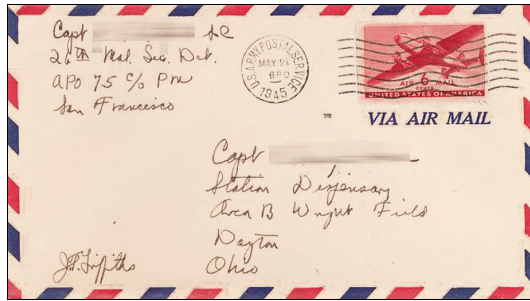 Capt
26th Mal. Sur. Det.
APO 75 c/o PM
San Francisco
U.S. ARMY POSTAL SERVICE
MAY 24
BPO
1945
AIR 6 MAIL
CENTS
UNITED STATES OF AMERICA
VIA AIR MAIL
Capt
Station Dispensary
Area B Wright Field
Dayton
Ohio